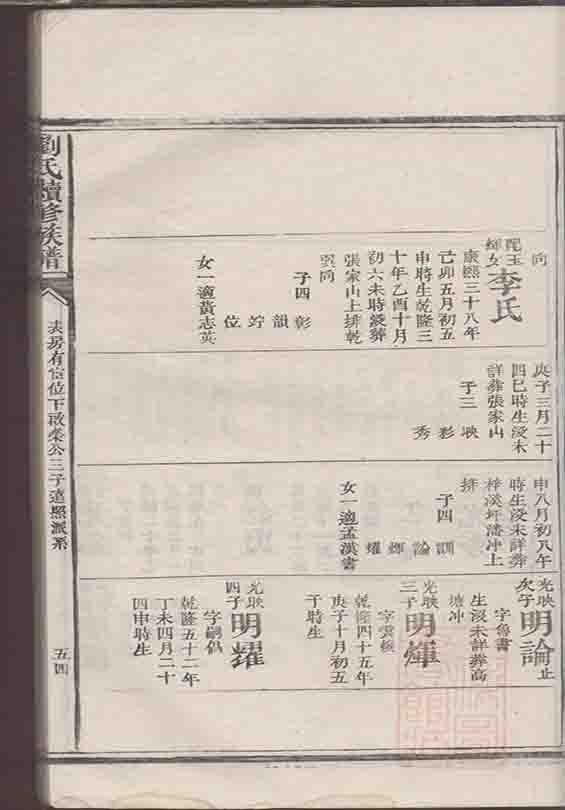 劉氏續修族譜
表房有位下啟榮公三子遠照派系
五四
向
配玉
輝女
李氏
康熙三十八年
己卯五月初五
申時生乾隆三
十年乙酉十月
初六未時歿葬
張家山上排乾
巽向
子四 彰
韻
竚
位
女一適黃志英
庚子三月二十
四巳時生沒未
詳葬張家山
子三 映
彩
秀
申八月初八午
時生沒未詳葬
梓溪坪潘冲上
排
子四 訓
論
輝
耀
女一適孟漢書
光映
次子
明論 止
字魯書
生沒未詳葬高
塘冲
光映
三子
明煇
字雲
乾隆四十五年
庚子十月初五
子時生
光映
四子
明耀
字嗣
乾隆五十二年
丁未四月二十
四申時生